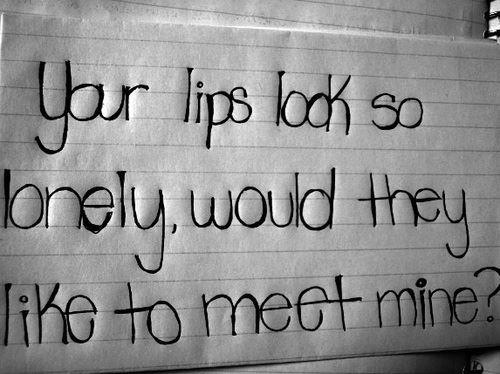 Your lips look so
lonely, would they
like to meet mine?